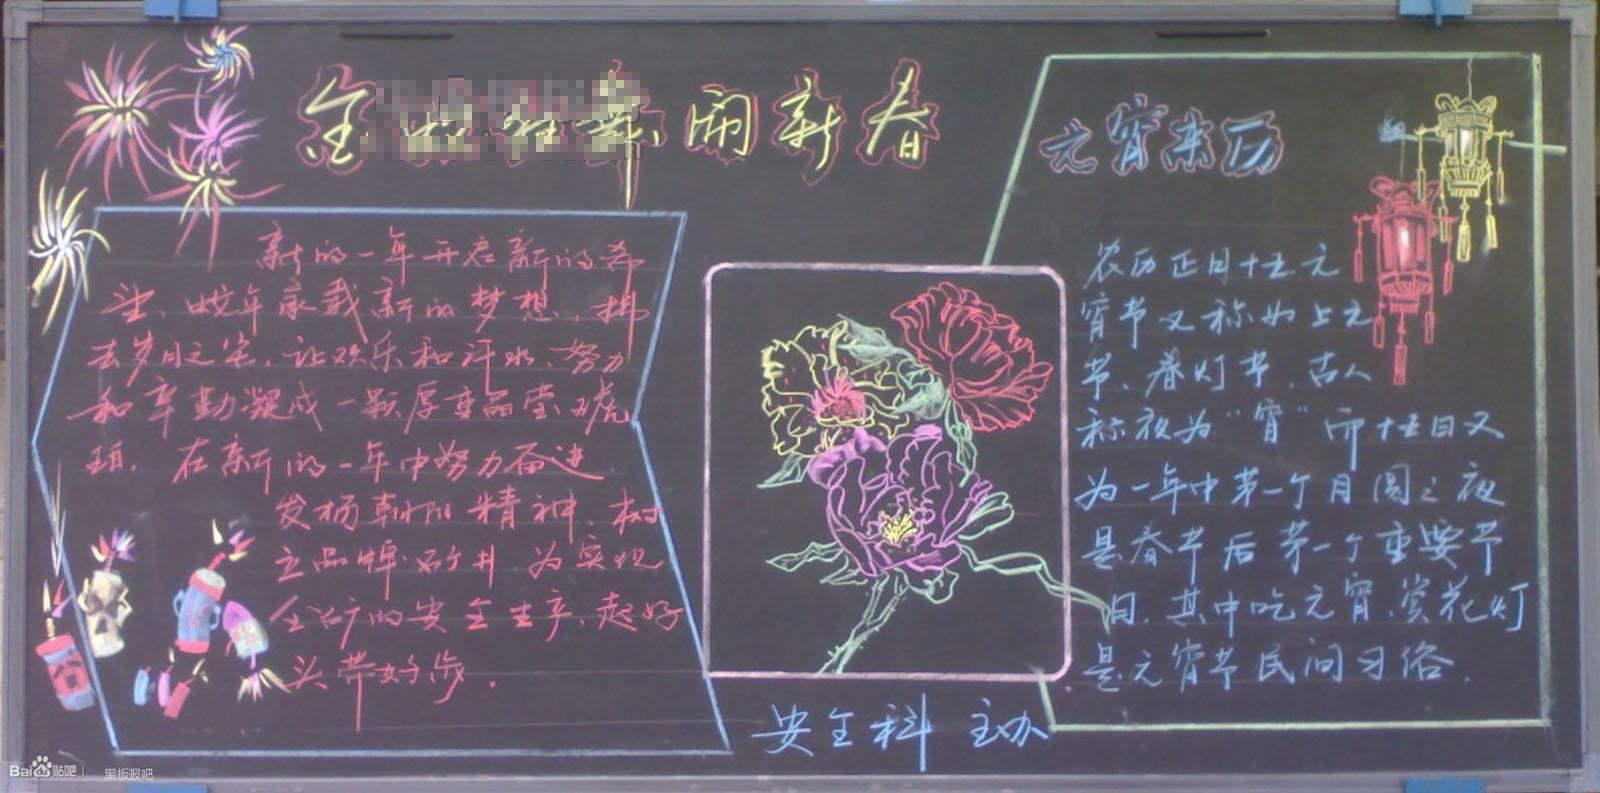 金蛇狂舞闹新春
新的一年开启新的希
望，蛇年承载新的梦想，拂
去岁月之尘，让欢乐和汗水、努力
和辛勤凝成一颗厚重晶莹琥
珀，在新的一年中努力奋进，
发扬朝阳精神，树
立品牌石井，为实现
全矿的安全生产，起好
头带好步.
元宵来历
农历正月十五元
宵节又称为上元
节、春灯节，古人
称夜为“宵”而十五日又
为一年中第一个月圆之夜
是春节后第一个重要节
日，其中吃元宵、赏花灯
是元宵节民间习俗.
安全科 主办
Bai贴吧 | 黑板报吧